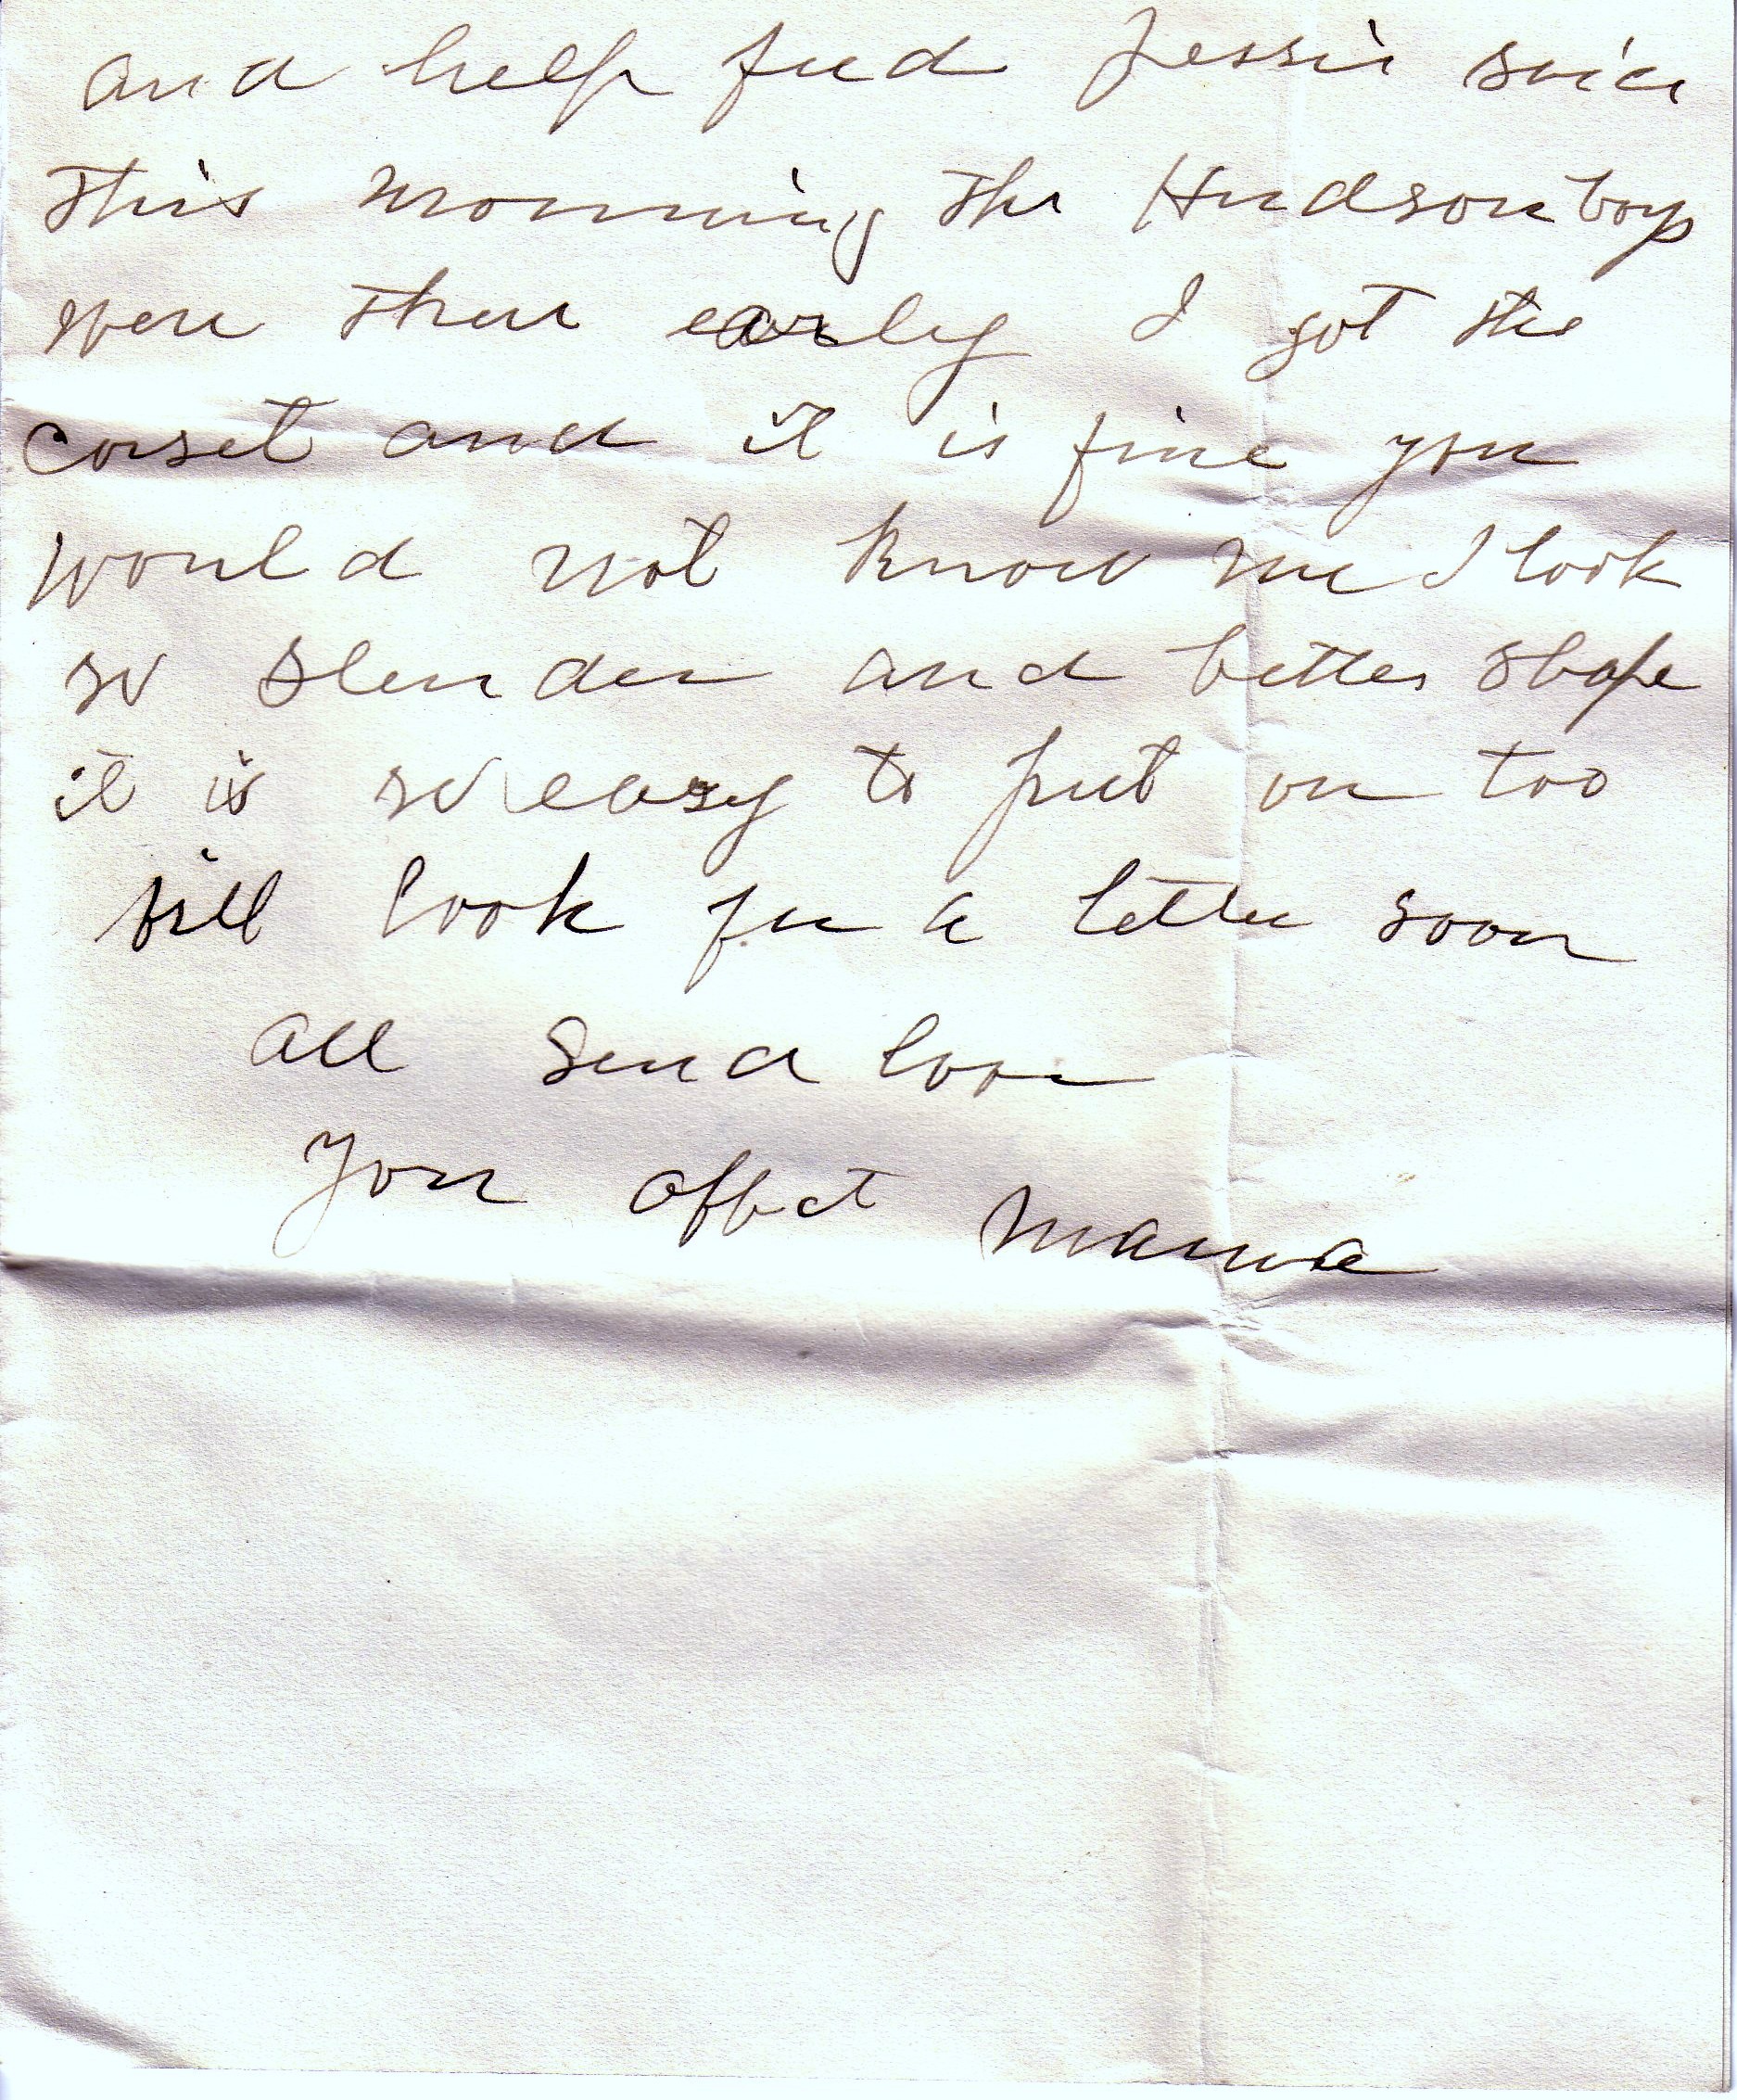 and help feed Jessie since
this morning the Hudson boys
were there early I got the
corset and it is fine you
would not know me I look
so slender and better shape
it is so easy to put on too
will look for a letter soon
all send love
Your affect Mama